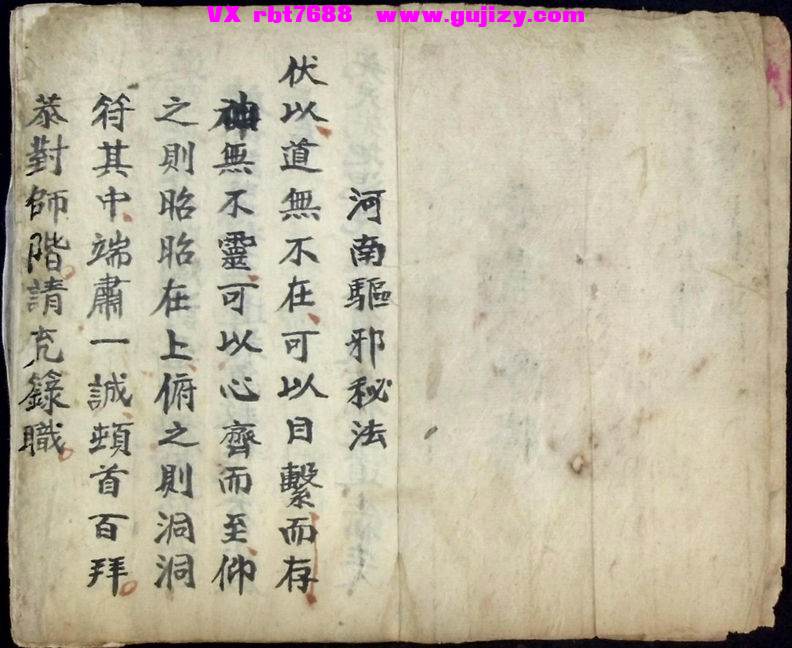 VX rbt7688 www.gujizy.com
河南驅邪秘法
伏以道無不在可以目繫而存
神無不靈可以心齊而至仰
之則昭昭在上俯之則洞洞
符其中端肅一誠頓首百拜
恭對師階請充錄職